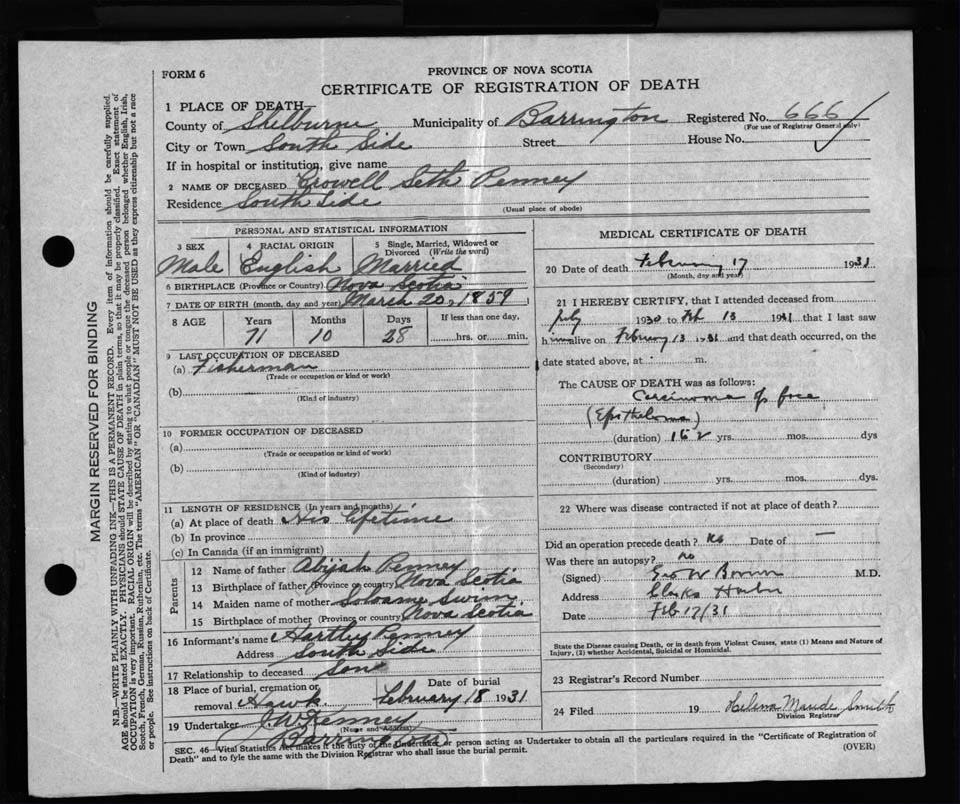 FORM 6
PROVINCE OF NOVA SCOTIA
CERTIFICATE OF REGISTRATION OF DEATH
1 PLACE OF DEATH
County of Shelburne Municipality of Barrington Registered No. 666
(For use of Registrar General only)
City or Town South Side Street House No.
If in hospital or institution, give name
2 NAME OF DECEASED Crowell Seth Penney
Residence South Side
(Usual place of abode)
PERSONAL AND STATISTICAL INFORMATION
3 SEX 4 RACIAL ORIGIN 5 Single, Married, Widowed or Divorced (Write the word)
Male English Married
6 BIRTHPLACE (Province or Country) Nova Scotia
7 DATE OF BIRTH (month, day and year) March 20, 1859
8 AGE Years Months Days If less than one day,
71 10 28 hrs. or min.
9 LAST OCCUPATION OF DECEASED
(a) Fisherman
(Trade or occupation or kind or work)
(b)
(Kind of industry)
10 FORMER OCCUPATION OF DECEASED
(a)
(Trade or occupation or kind or work)
(b)
(Kind of industry)
11 LENGTH OF RESIDENCE (In years and months)
(a) At place of death His lifetime
(b) In province
(c) In Canada (if an immigrant)
Parents
12 Name of father Abijah Penney
13 Birthplace of father (Province or country) Nova Scotia
14 Maiden name of mother Soloame Swim
15 Birthplace of mother (Province or country) Nova Scotia
16 Informant's name Hartley Penney
Address South Side
17 Relationship to deceased Son
18 Place of burial, cremation or removal Hawk Date of burial February 18 1931
19 Undertaker Kenney
(Name and Address)
Barrington
MEDICAL CERTIFICATE OF DEATH
20 Date of death February 17 1931
(Month, day and year)
21 I HEREBY CERTIFY, that I attended deceased from
July 1930 to Feb 13 1931 that I last saw
him alive on February 13 1931 and that death occurred, on the
date stated above, at m.
The CAUSE OF DEATH was as follows:
Carcinoma of face
(Epithelioma)
(duration) yrs. mos. dys
CONTRIBUTORY
(Secondary)
(duration) yrs. mos. dys.
22 Where was disease contracted if not at place of death?
Did an operation precede death? No Date of —
Was there an autopsy? no
(Signed) Geo W M.D.
Address Clarks Harbor
Date Feb 17/31
State the Disease causing Death, or in death from Violent Causes, state (1) Means and Nature of
Injury, (2) whether Accidental, Suicidal or Homicidal.
23 Registrar's Record Number
24 Filed 19 Helena Maude Smith
Division Registrar
SEC. 46—Vital Statistics Act makes it the duty of the Undertaker or person acting as Undertaker to obtain all the particulars required in the "Certificate of Registration of
Death" and to fyle the same with the Division Registrar who shall issue the burial permit.
(OVER)
MARGIN RESERVED FOR BINDING
N.B.—WRITE PLAINLY WITH UNFADING INK—THIS IS A PERMANENT RECORD. Every item of information should be carefully supplied.
AGE should be stated EXACTLY. PHYSICIANS should STATE CAUSE OF DEATH in plain terms, so that it may be properly classified. Exact statement of
OCCUPATION is very important. RACIAL ORIGIN will be described by stating to what people or tongue the deceased person belonged whether English, Irish,
Scotch, French, German, Russian, Ruthenian, etc. The terms "AMERICAN" OR "CANADIAN" MUST NOT BE USED as they express citizenship but not a race
or people. See instructions on back of Certificate.